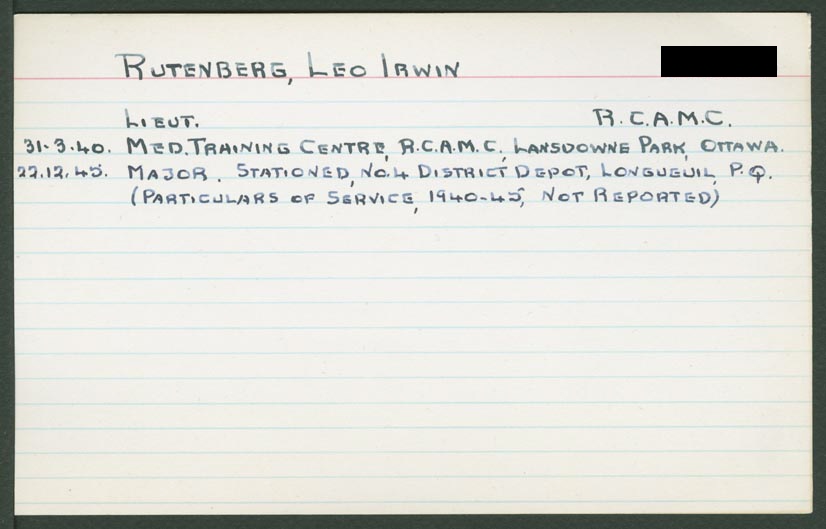 Rutenberg, Leo Irwin
Lieut. R.C.A.M.C.
31.3.40. Med. Training Centre, R.C.A.M.C., Lansdowne Park, Ottawa.
22.12.45. Major. Stationed, No.4 District Depot, Longueuil, P.Q.
(Particulars of Service, 1940-45, Not Reported)